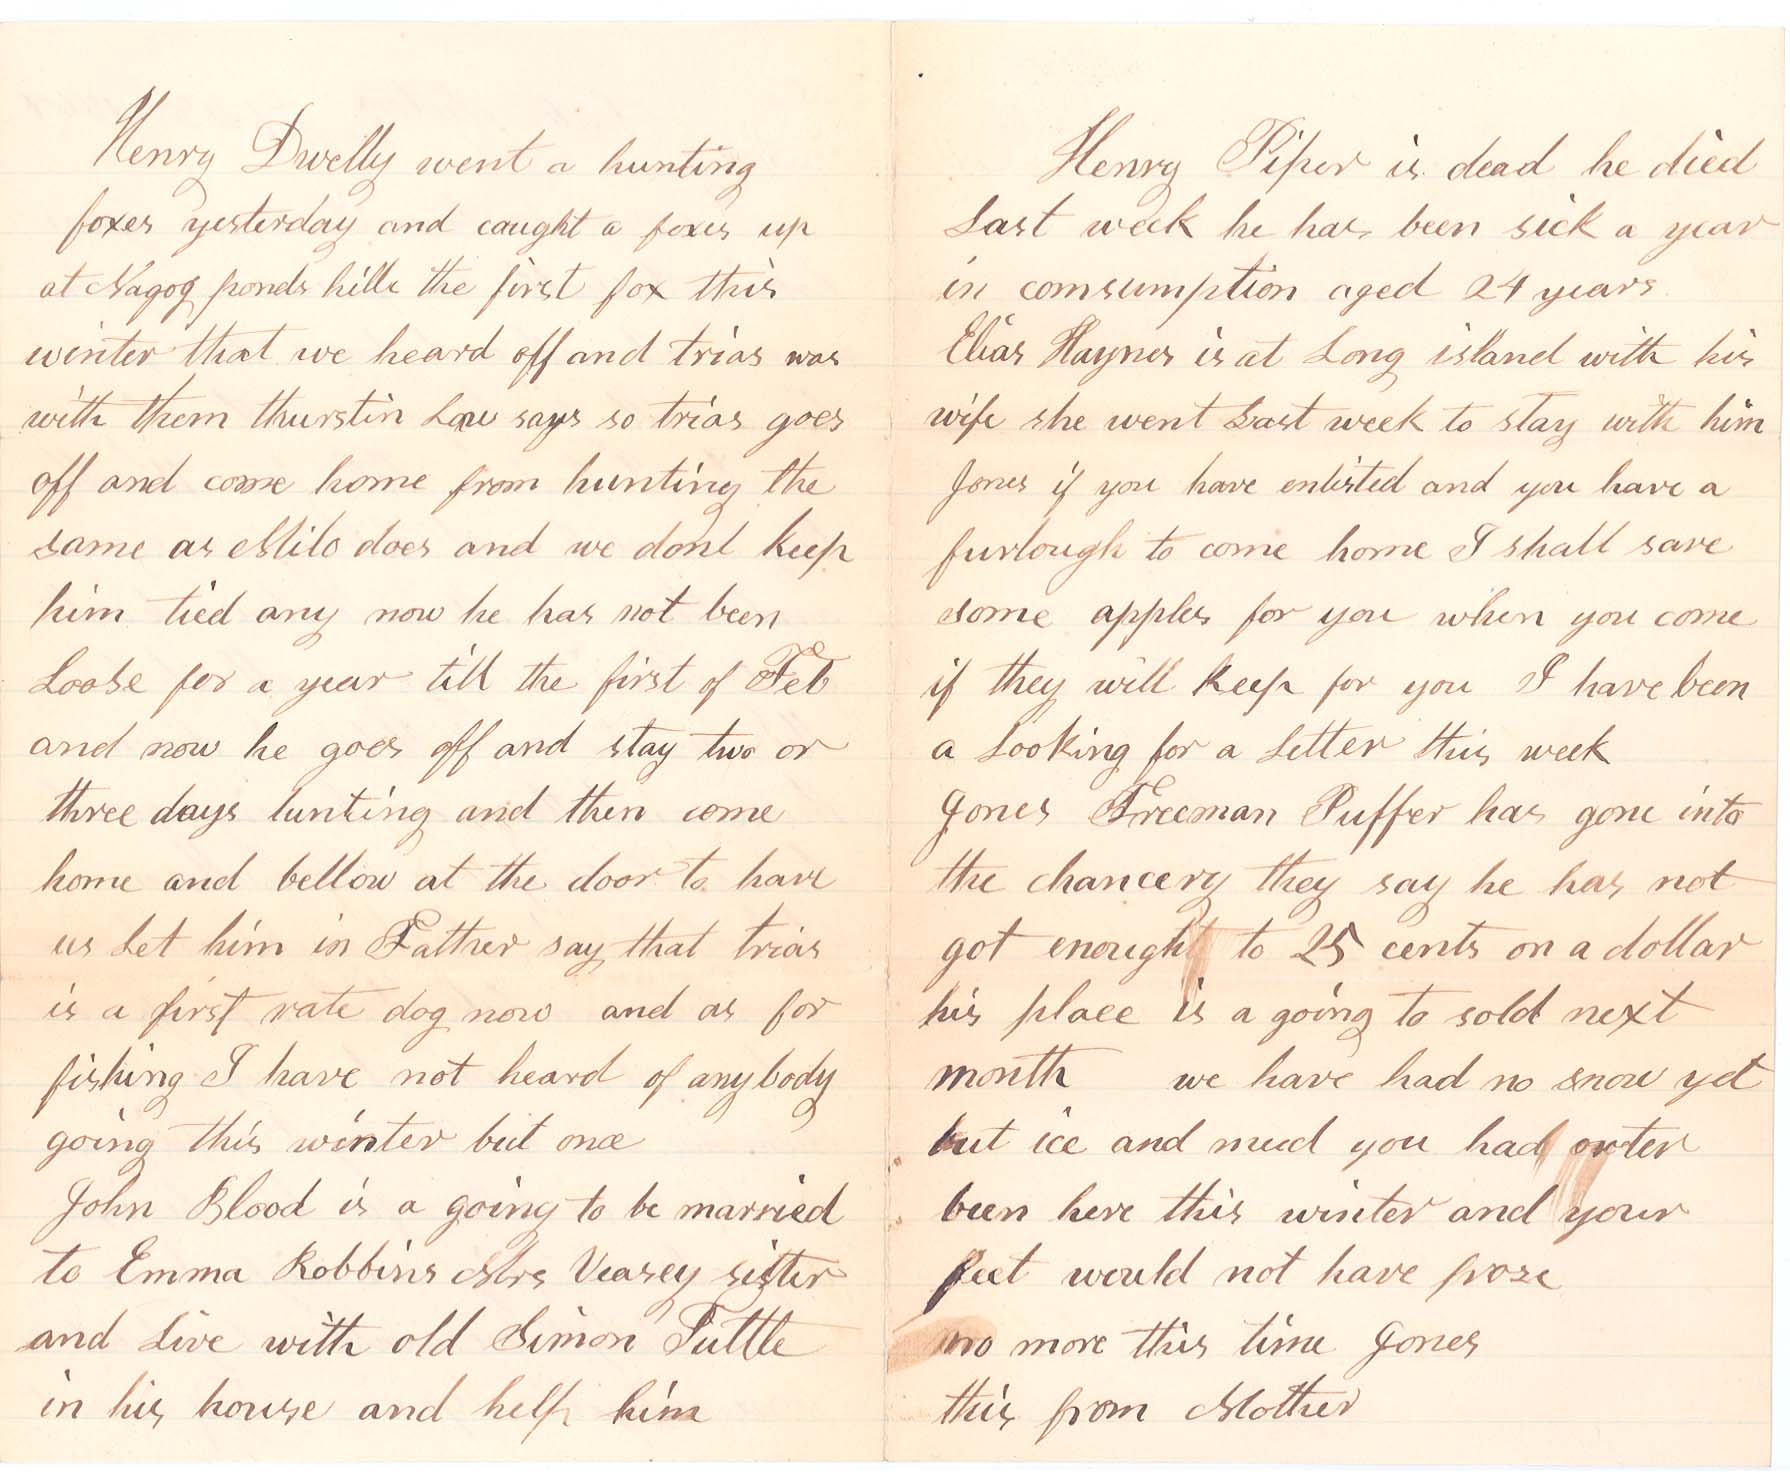 Henry Dwelly went a hunting
foxes yesterday and caught a foxes up
at Nagog ponds hills the first fox this
winter that we heard off and trias was
with them thurstin Law says so trias goes
off and come home from hunting the
same as Milo does and we dont keep
him tied any now he has not been
Loose for a year till the first of Feb
and now he goes off and stay two or
three days hunting and then come
home and bellow at the door to have
us Let him in Father say that trias
is a first rate dog now and as for
fishing I have not heard of anybody
going this winter but once
John Blood is a going to be married
to Emma Robbins Mrs Veasey sister
and Live with old Simon Tuttle
in his house and help him
Henry Piper is dead he died
Last week he has been sick a year
in comsumption aged 24 years
Elias Haynes is at Long island with his
wife she went Last week to stay with him
Jones if you have enlisted and you have a
furlough to come home I shall save
some apples for you when you come
if they will keep for you I have been
a Looking for a Letter this week
Jones Freeman Puffer has gone into
the chancery they say he has not
got enought to 25 cents on a dollar
his place is a going to sold next
month we have had no snow yet
but ice and mud you had orter
been here this winter and your
feet would not have froze
no more this time Jones
this from Mother